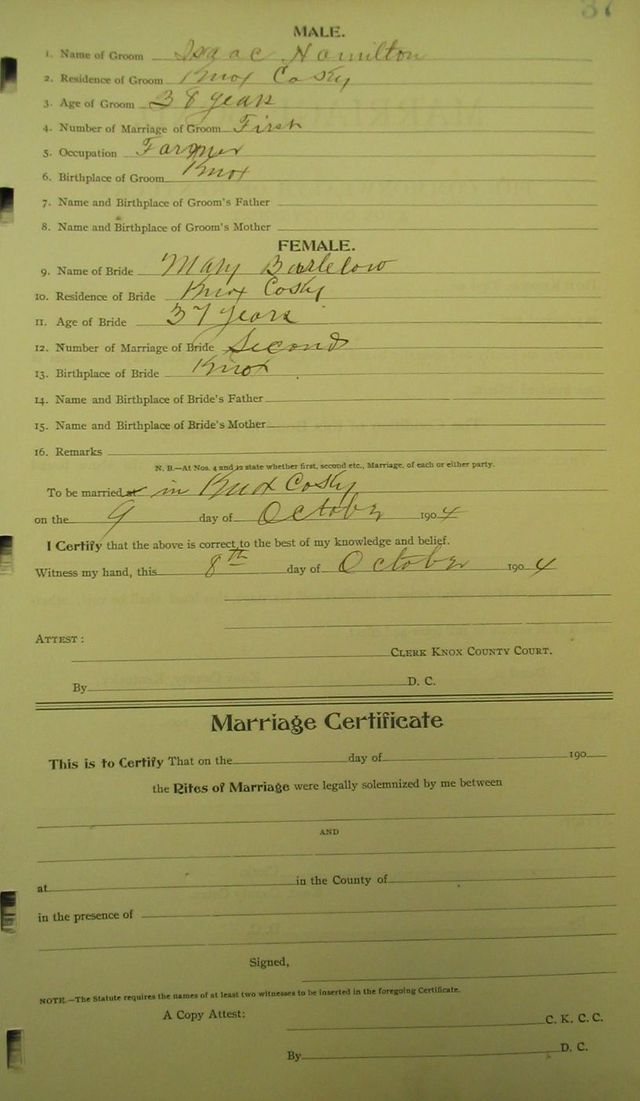 37
MALE.
1. Name of Groom Isaac Hamilton
2. Residence of Groom Knox Co Ky
3. Age of Groom 38 years
4. Number of Marriage of Groom First
5. Occupation Farmer
6. Birthplace of Groom Knox
7. Name and Birthplace of Groom's Father
8. Name and Birthplace of Groom's Mother
FEMALE.
9. Name of Bride Mary Barlelow
10. Residence of Bride Knox Co Ky
11. Age of Bride 37 years
12. Number of Marriage of Bride Second
13. Birthplace of Bride Knox
14. Name and Birthplace of Bride's Father
15. Name and Birthplace of Bride's Mother
16. Remarks
N. B.—At Nos. 4 and 12 state whether first, second etc., Marriage, of each or either party.
To be married at in Knox Co Ky
on the 9 day of October 1904
I Certify that the above is correct to the best of my knowledge and belief.
Witness my hand, this 8th day of October 1904
ATTEST:
CLERK KNOX COUNTY COURT.
By D. C.
Marriage Certificate
This is to Certify That on the day of 190
the Rites of Marriage were legally solemnized by me between
AND
at in the County of
in the presence of
Signed,
NOTE.—The Statute requires the names of at least two witnesses to be inserted in the foregoing Certificate.
A Copy Attest:
C. K. C. C.
By D. C.